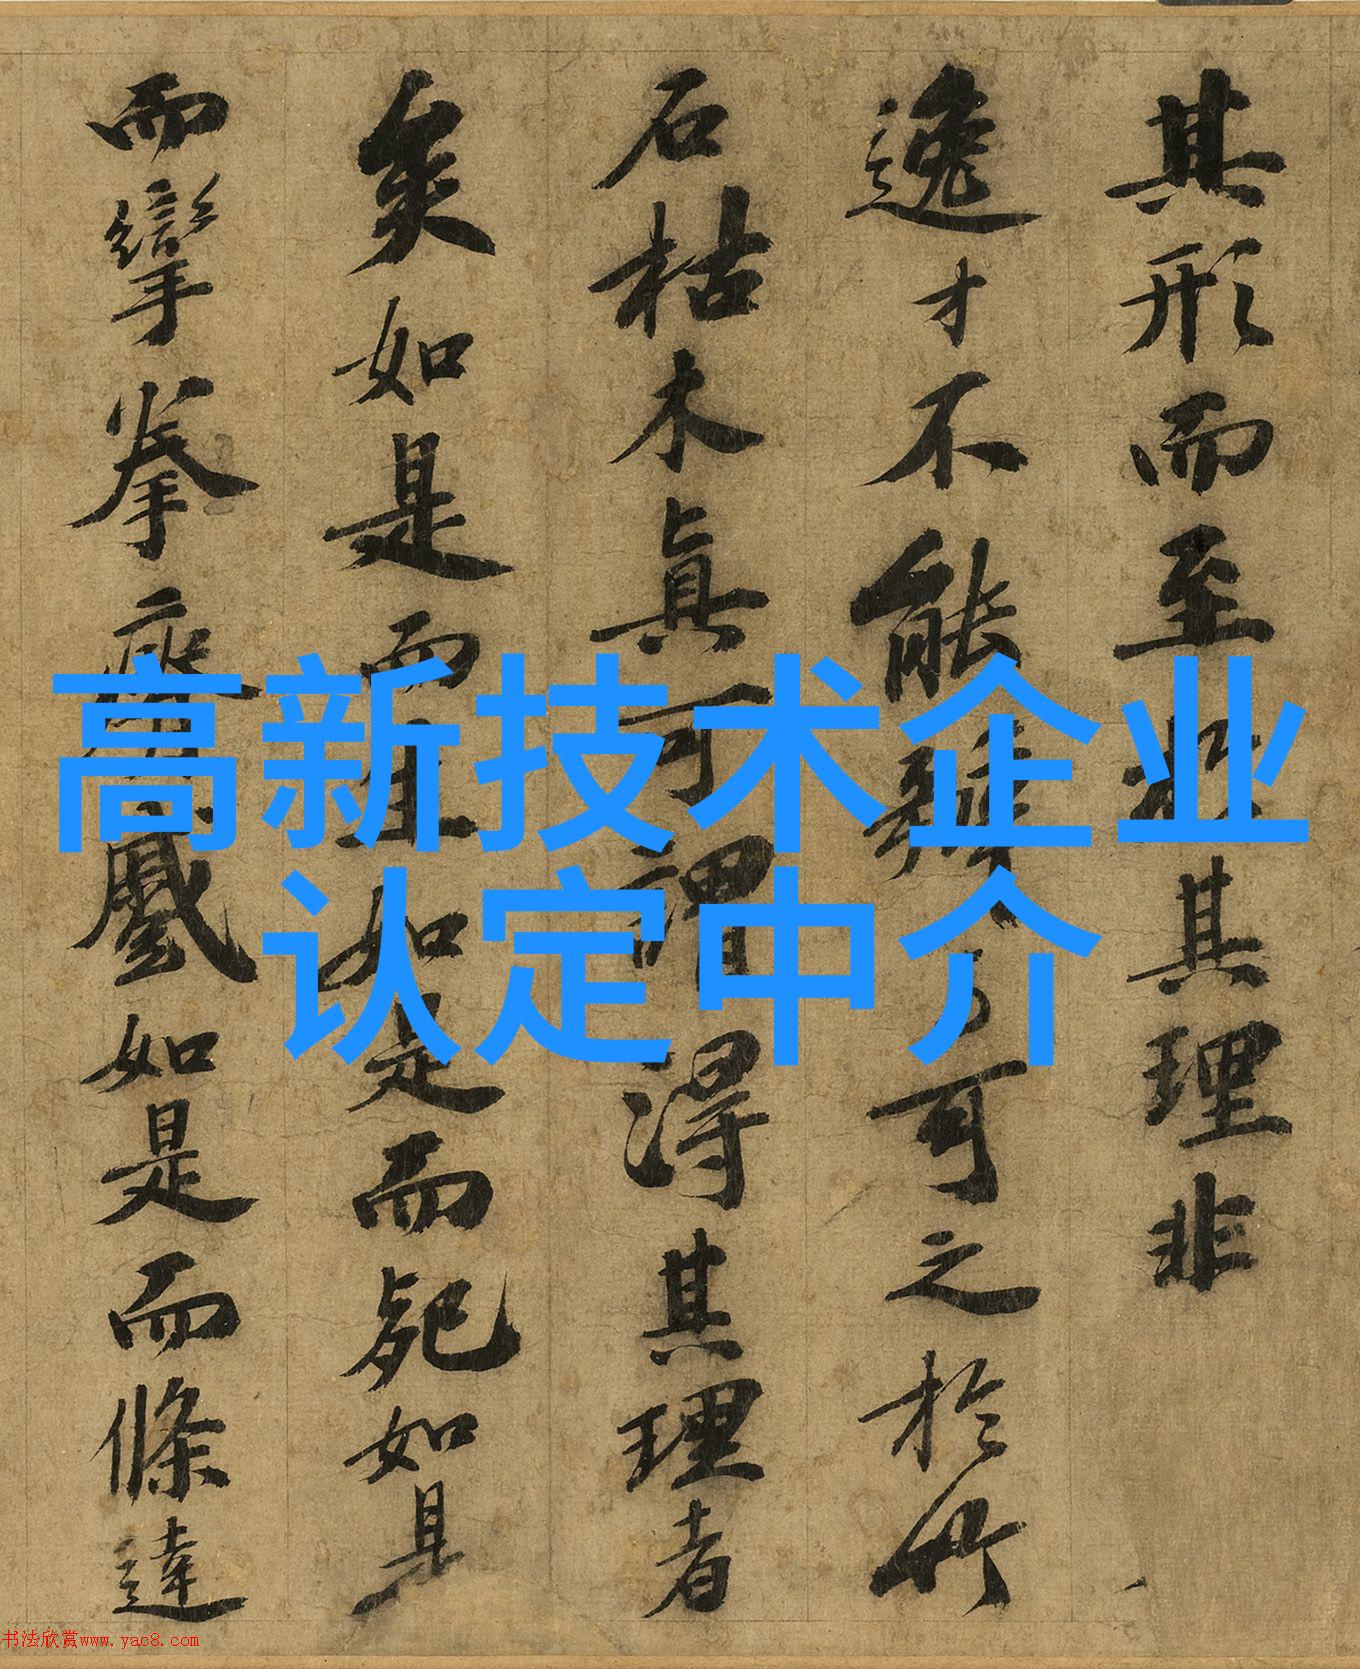 其形而至於其理非
逸才不能辨可之於竹
石枯木眞可謂得其理者
矣如是而生如是而死如是
而攣拳瘠蹙如是而條達
高新技术企业
认定中介
书法欣赏www.yac8.com